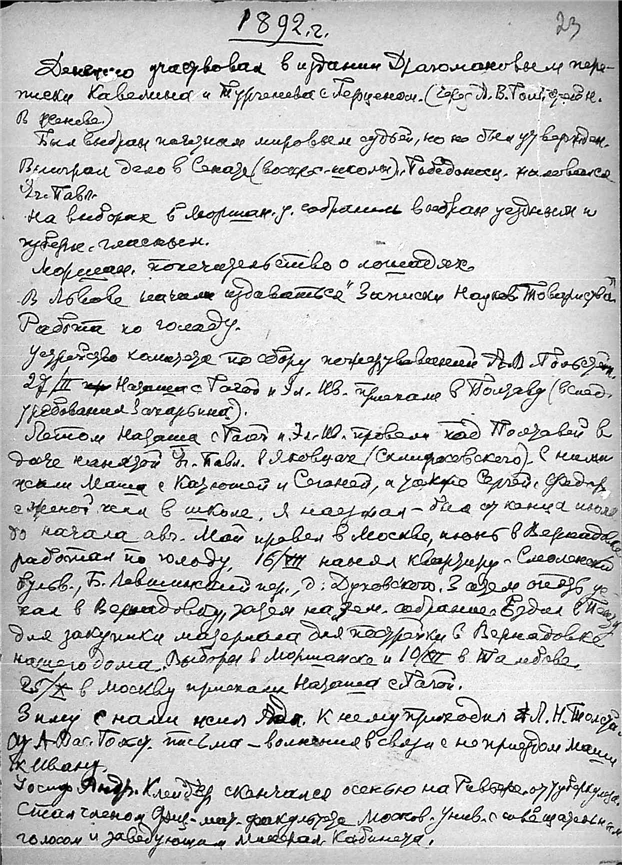 1892 г.
23
участвовал в издании Драгомановым пере-
писки Кавелина и Тургенева с Герценом. (
В Женеве.)
Был выбран почетным мировым судьей, но не был утвержден.
Выиграл дело в Сенате (воскр. школы).
На выборах в Моршан. у. собрании выбран уездным и
губерн. гласным.
Моршан. попечительство о лошадях.
В Львове начали издаваться "Записки Науков. Товариства"
Работа по голоду.
Устройство комитета по сбору пожертвований
27/III Наташа с Гагой и Эл. Ив. приехали в Полтаву (вслед.
требования Захарьина).
Летом Наташа с Гагой и Эл. Ив. провели под Полтавой в
даче нанятой в Яковцах (Склифосовского). С ними
жили Маша с Катюшей и, а также Сергей.
с женой жили в школе. Я наезжал – был от конца июля
до начала авг. Май провел в Москве, июнь в Вернадовке
работал по голоду. 16/VIII нанял квартиру – Смоленский
бульв., Б. Левшинский пер., д. Духовской. Затем опять уе-
хал в Вернадовку, затем на зем. собрание. Ездил в
для закупки материала для постройки в Вернадовке
нашего дома. Выборы в Моршанске и 10/XII в Тамбове.
25/X в Москву приехали Наташа с Гагой.
Зиму с нами жил. К нему приходил Л. Н. Толстой.
письма – волнения в связи с неприездом Маши
к Ивану.
Клейбер скончался осенью на Ривьере от туберкулеза.
Стал членом физ.-мат. факультета Москов. Унив. с совещательным
голосом и заведующим Минерал. Кабинета.